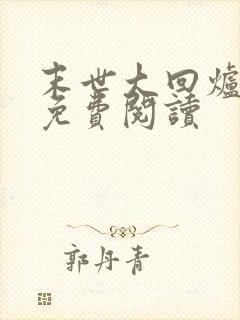 末世大回爐
免費閱讀
郭丹青